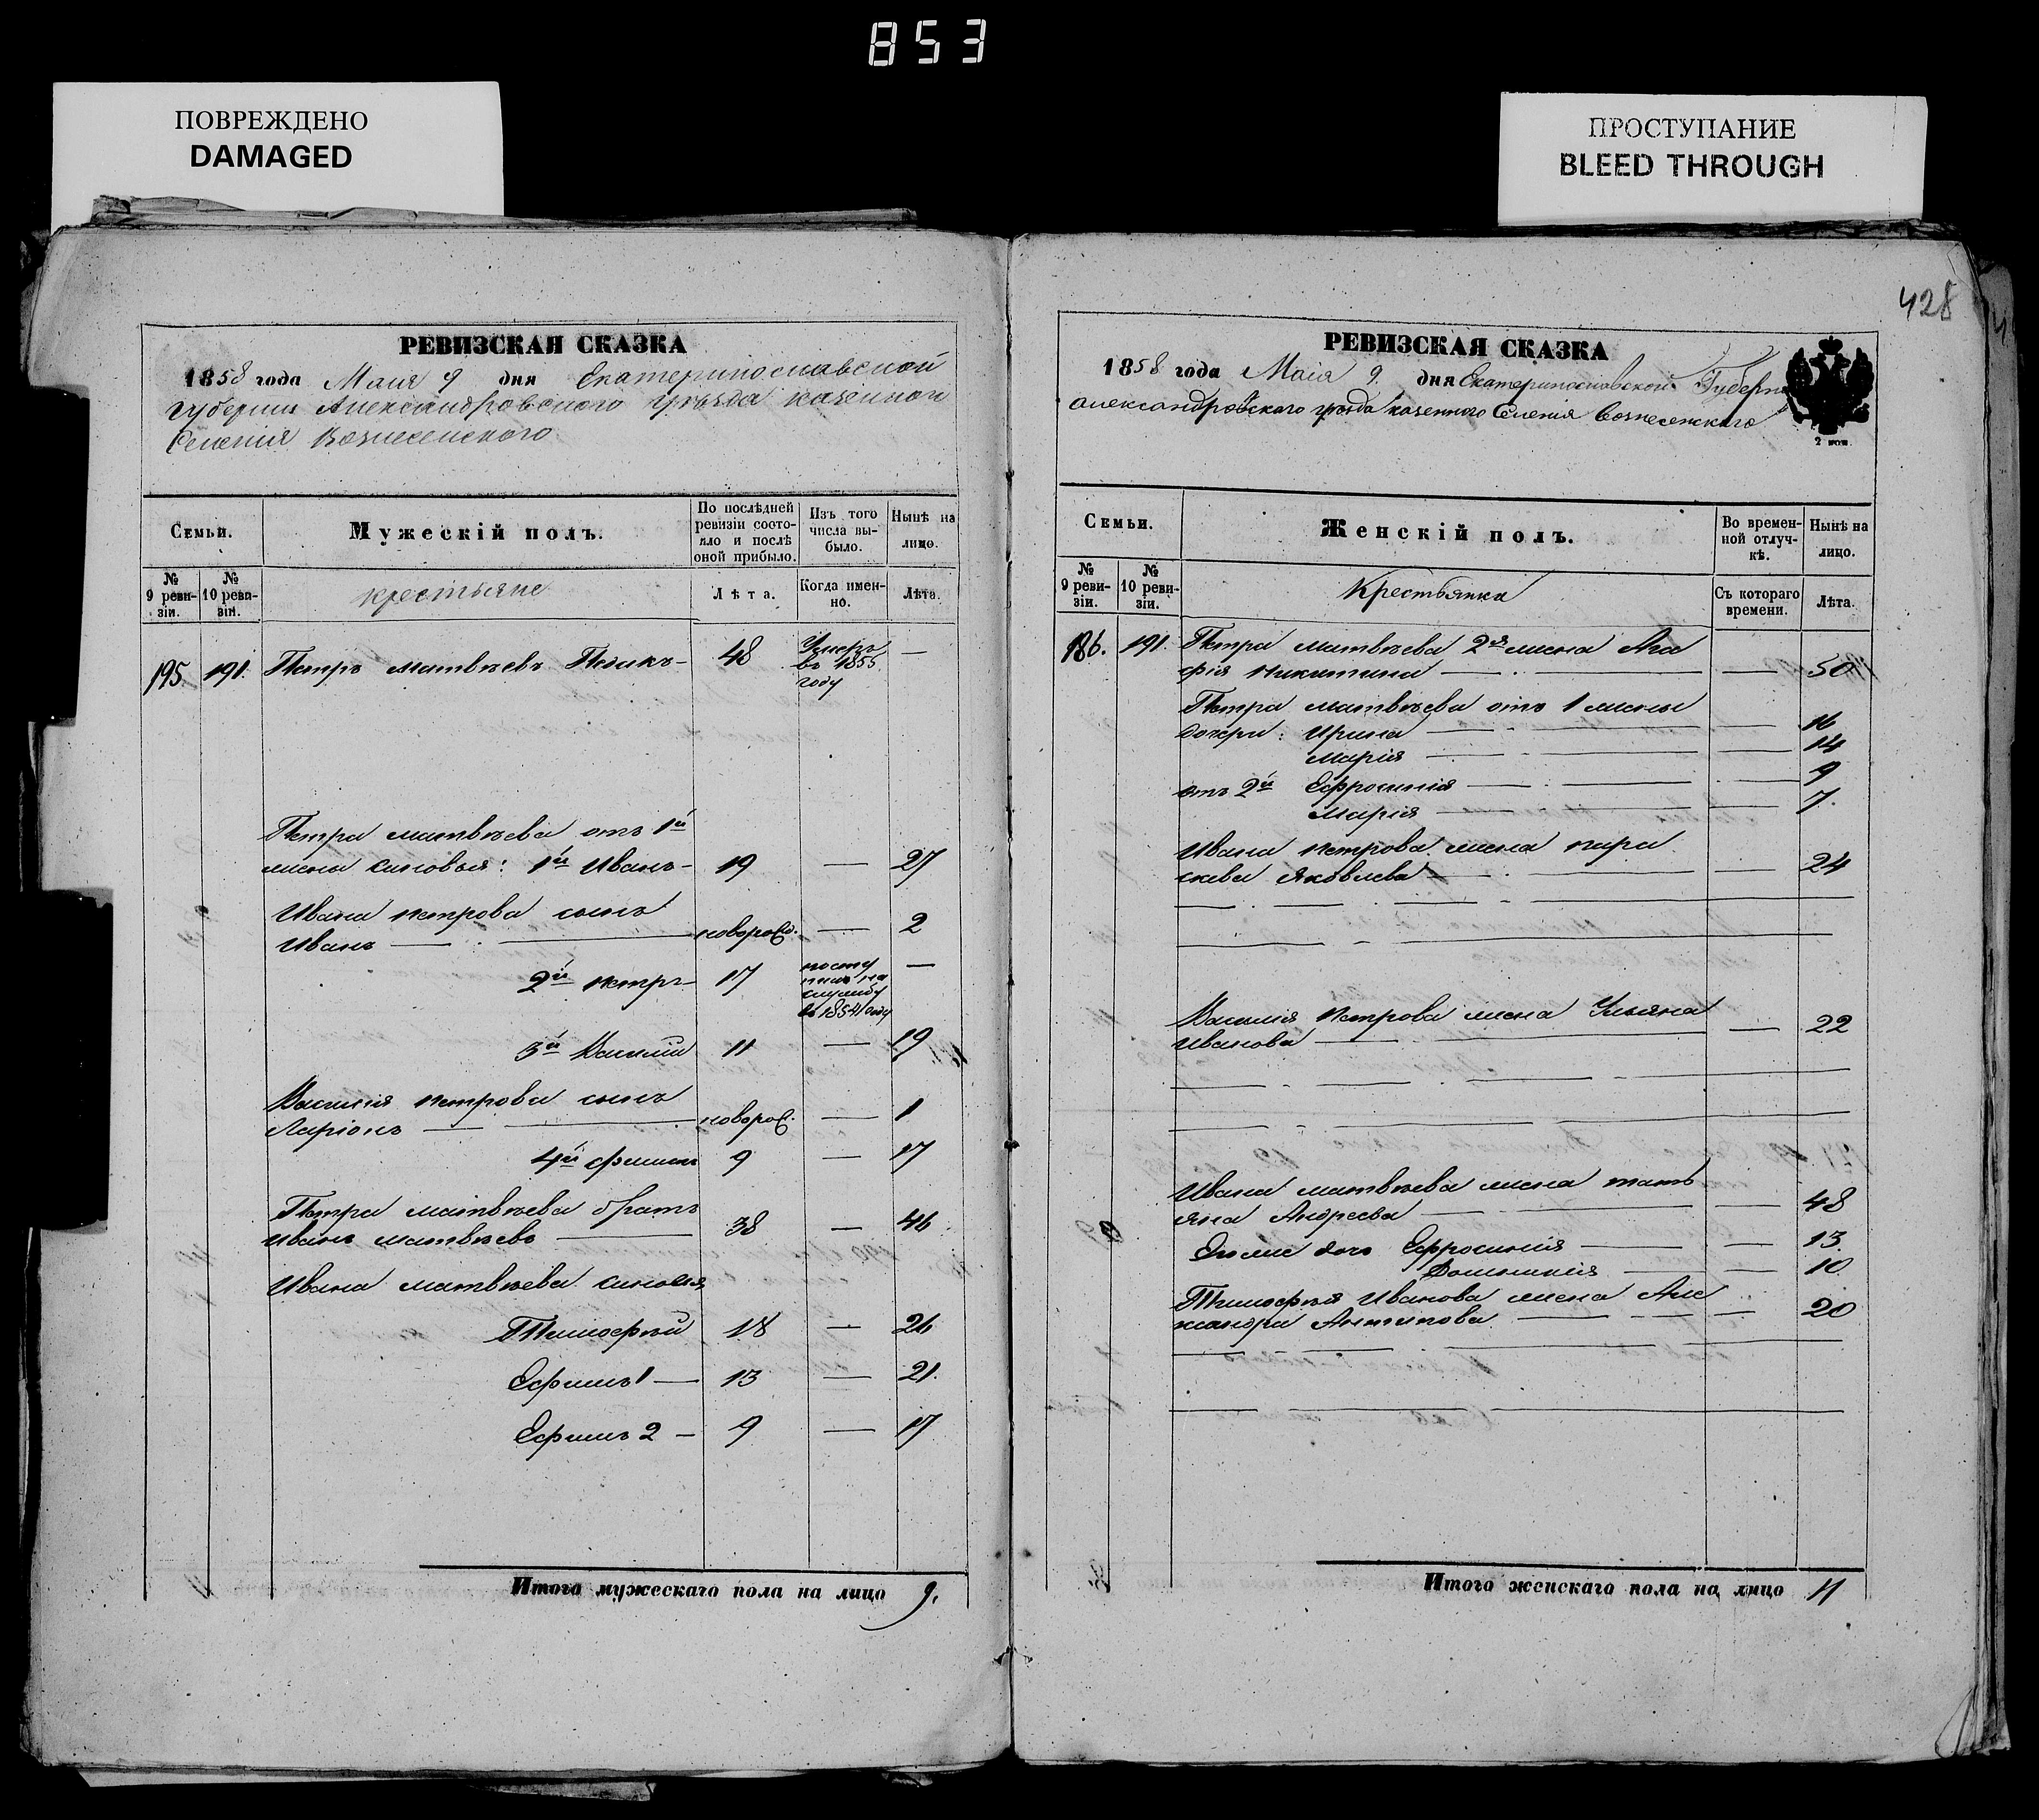 853
ПОВРЕЖДЕНО
DAMAGED
ПРОСТУПАНИЕ
BLEED THROUGH
РЕВИЗСКАЯ СКАЗКА
1858 года Маия 9 дня Екатеринославской
губернии Александровского уѣзда казенного
Селенія Вознесенского
Семьи.
Мужескій полъ.
По послѣдней ревизіи состояло и послѣ оной прибыло.
Изъ того числа выбыло.
Нынѣ на лицо.
№ 9 ревизіи.
№ 10 ревизіи.
крестьяне
Лѣта.
Когда именно.
Лѣта.
195. 191. Петръ Матвѣевъ 48 Умеръ въ 1855 году —
Петра Матвѣева отъ 1й
жены синовья: 1й Иванъ — 19 — 27
Ивана Петрова сынъ
Иванъ — новорож. — 2
2й Петръ — 17 поступилъ на службу въ 1854 году —
3й Василій 11 — 19
Василія Петрова сынъ
Ларіонъ — новорож. — 1
4й 9 — 17
Петра Матвѣева братъ
Иванъ Матвѣевъ — 38 — 46
Ивана Матвѣева синовья
Тимофѣй 18 — 26
Ефимъ 1 — 13 — 21.
Ефимъ 2 — 9 — 17
Итого мужескаго пола на лицо 9.
428
РЕВИЗСКАЯ СКАЗКА
1858 года Маія 9. дня Екатеринославской Губерніи
Александровского уѣзда казенного Селенія Вознесенского
2 коп.
Семьи.
Женскій полъ.
Во временной отлучкѣ.
Нынѣ на лицо.
№ 9 ревизіи.
№ 10 ревизіи.
Крестьянки
Съ котораго времени.
Лѣта.
186. 191. Петра Матвѣева 2я жена Ага
фія Никитина — — 50
Петра Матвѣева отъ 1 жены
дочери: Ирина — — 16
Марія — — 14
отъ 2й Ефросинія — — 9
Марія — — 7.
Ивана Петрова жена Пара
скева Яковлева — — 24
Василія Петрова жена Ульяна
Иванова — — 22
Ивана Матвѣева жена Тать
яна Андреева — — 48
Его же дочь Ефросинія — — 13.
— — 10
Тимофѣя Иванова жена Але
ксандра Антипова — — 20
Итого женскаго пола на лицо 11